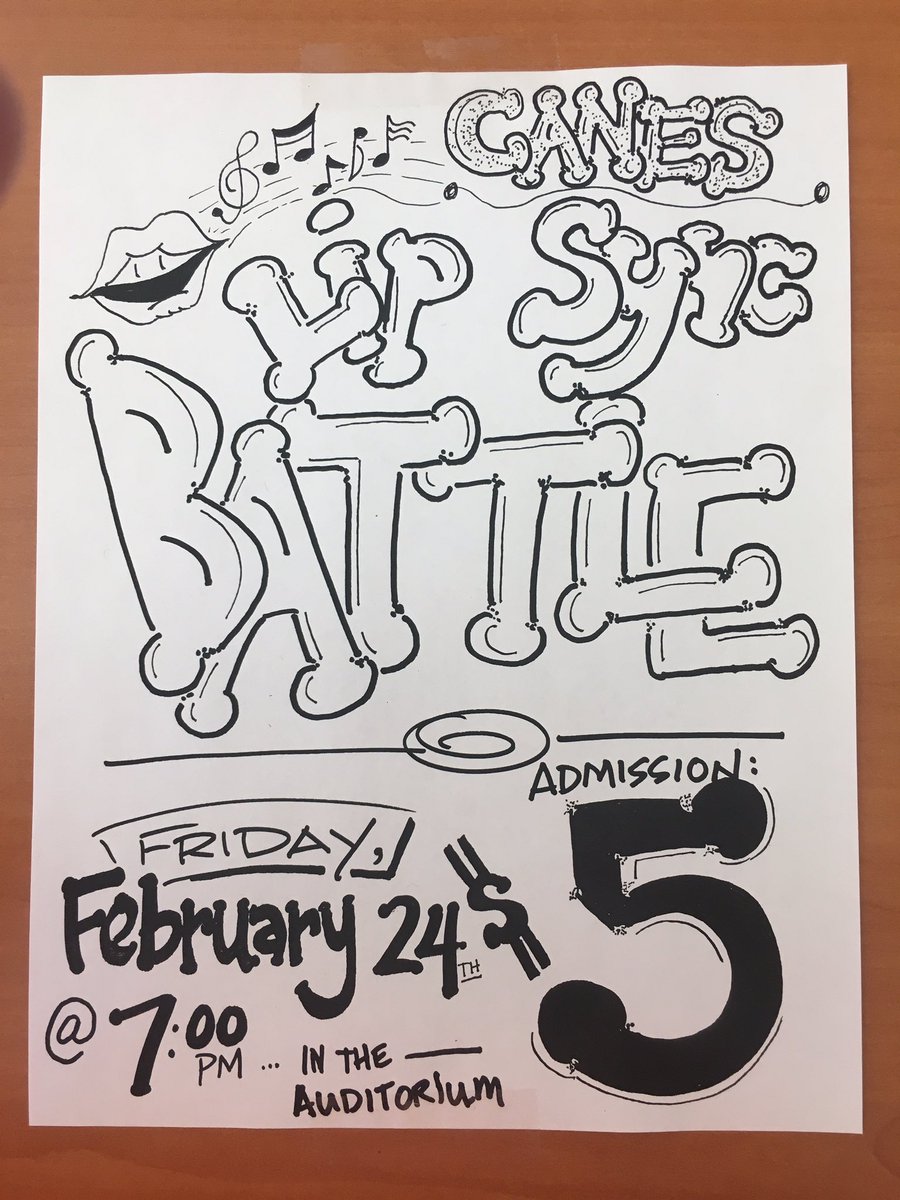 CANES
Lip Sync
BATTLE
ADMISSION:
$5
FRIDAY,
February 24TH
@ 7:00 PM ... IN THE
AUDITORIUM